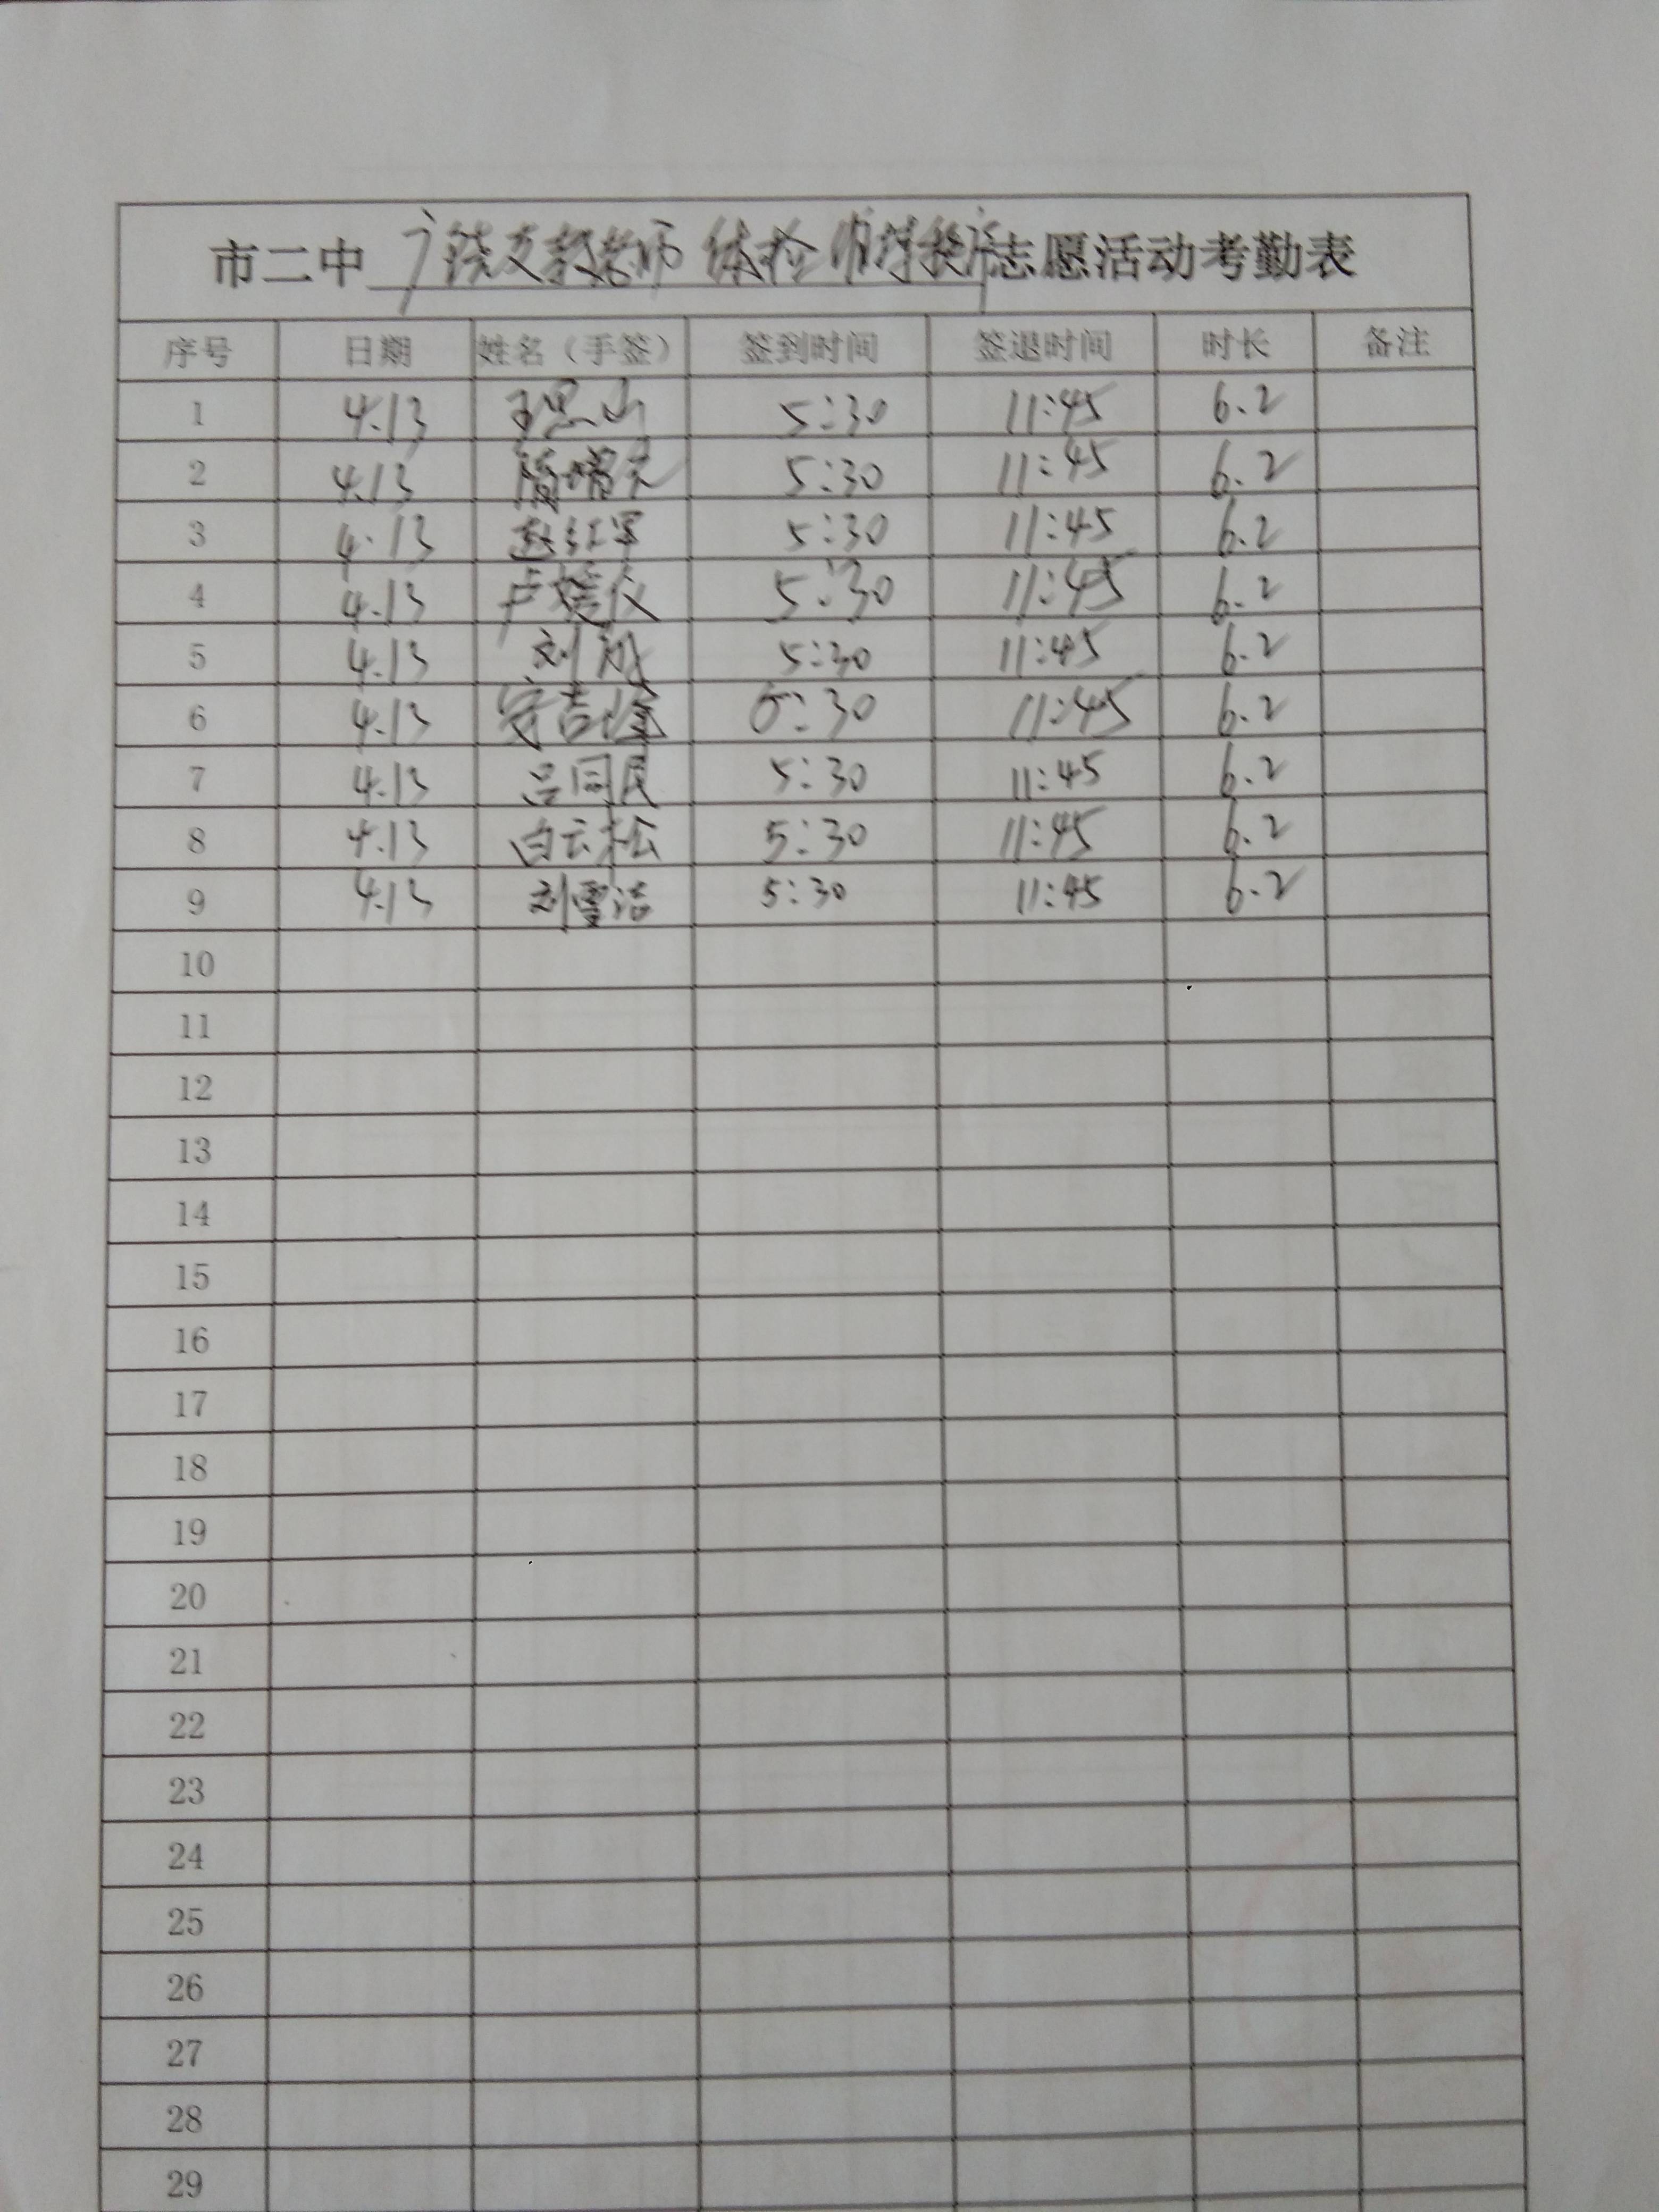 市二中 支教老师 体检 志愿活动考勤表
序号 日期 姓名（手签） 签到时间 签退时间 时长 备注
1 4.13 5:30 11:45 6.2
2 4.13 5:30 11:45 6.2
3 4.13 赵红军 5:30 11:45 6.2
4 4.13 5:30 11:45 6.2
5 4.13 刘 5:30 11:45 6.2
6 4.13 5:30 11:45 6.2
7 4.13 吕同民 5:30 11:45 6.2
8 4.13 白云松 5:30 11:45 6.2
9 4.13 刘雪洁 5:30 11:45 6.2
10
11
12
13
14
15
16
17
18
19
20
21
22
23
24
25
26
27
28
29